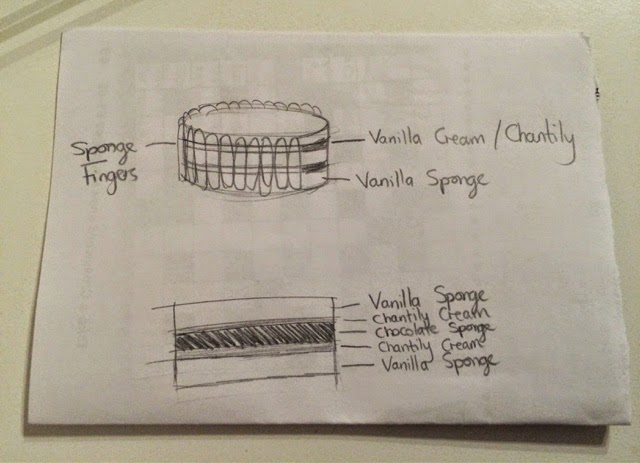 Sponge
Fingers
Vanilla Cream / Chantily
Vanilla Sponge
Vanilla Sponge
Chantily Cream
Chocolate Sponge
Chantily Cream
Vanilla Sponge